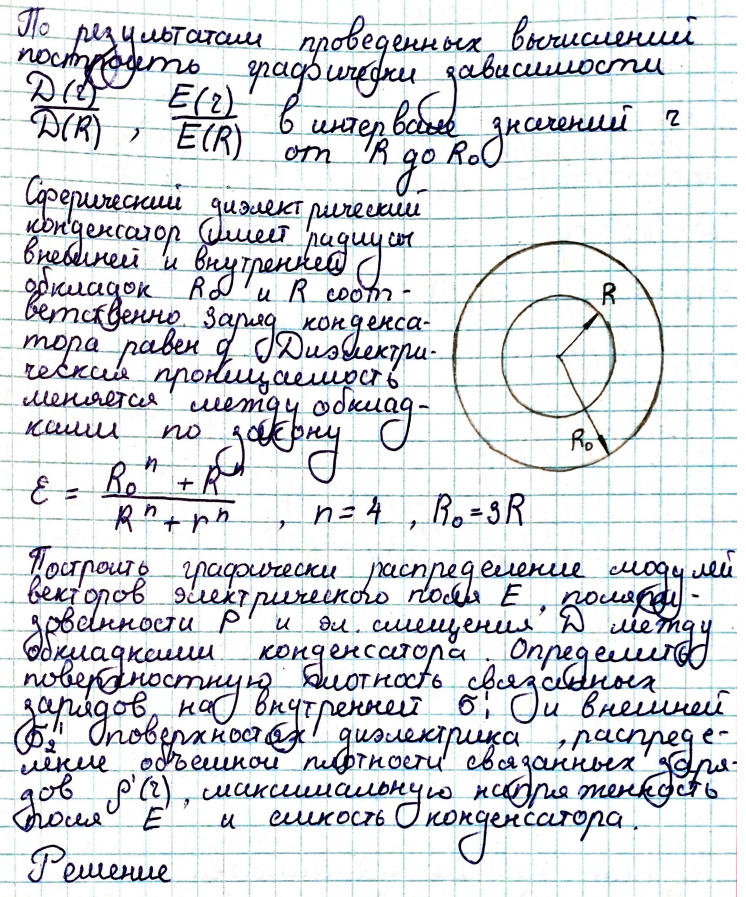 По результатам проведенных вычислений
построить графически зависимости
D(r)/D(R) , E(r)/E(R) в интервале значений r
от R до R₀
Сферический диэлектрический
конденсатор имеет радиусы
внешней и внутренней
обкладок R₀ и R соот-
ветственно. Заряд конденса-
тора равен q. Диэлектри-
ческая проницаемость
меняется между обклад-
ками по закону
R
R₀
ε = (R₀ⁿ + Rⁿ)/(Rⁿ + rⁿ) , n = 4 , R₀ = 3R
Построить графически распределение модулей
векторов электрического поля E, поляри-
зованности P и эл. смещения D между
обкладками конденсатора. Определить
поверхностную плотность связанных
зарядов на внутренней σ₁' и внешней
σ₂' поверхностях диэлектрика, распреде-
ление объемной плотности связанных заря-
дов ρ'(r), максимальную напряженность
поля E и емкость конденсатора.
Решение